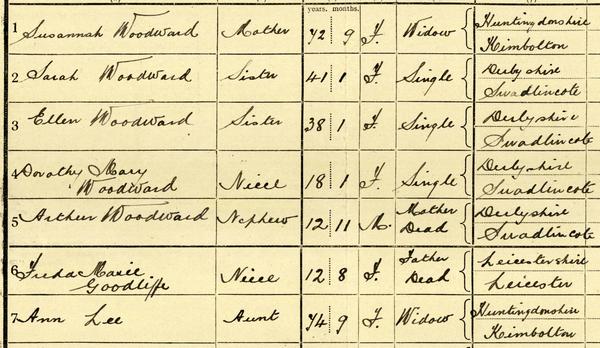 years. months.
1 Susannah Woodward Mother 72 9 F. Widow Huntingdonshire
Kimbolton
2 Sarah Woodward Sister 41 1 F. Single Derbyshire
Swadlincote
3 Ellen Woodward Sister 38 1 F. Single Derbyshire
Swadlincote
4 Dorothy Mary
Woodward Niece 18 1 F. Single Derbyshire
Swadlincote
5 Arthur Woodward Nephew 12 11 M. Mother
Dead Derbyshire
Swadlincote
6 Freda Marie
Goodliffe Niece 12 8 F. Father
Dead Leicestershire
Leicester
7 Ann Lee Aunt 74 9 F. Widow Huntingdonshire
Kimbolton